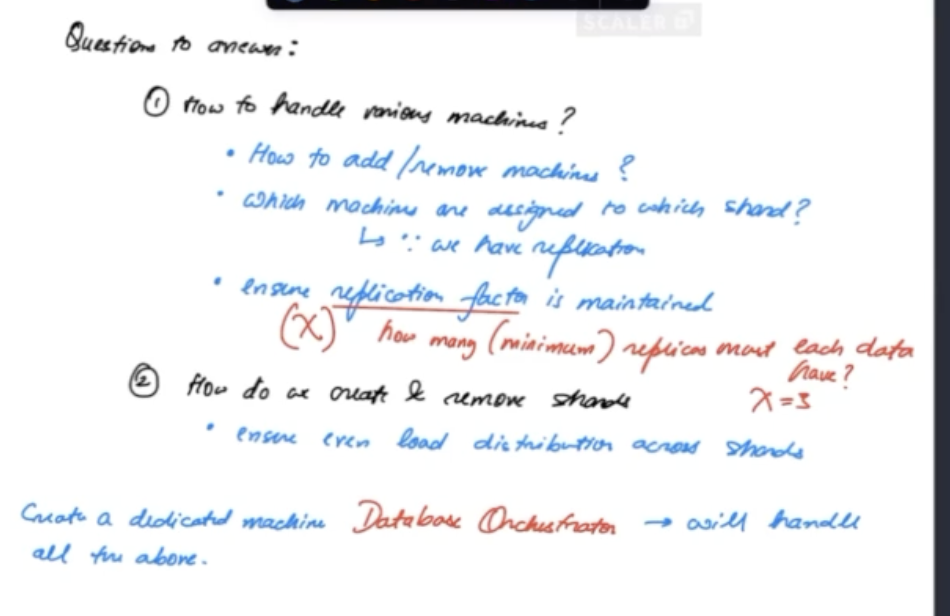 SCALER
Questions to answer:
① How to handle various machines?
• How to add/remove machines?
• which machines are assigned to which shard?
↳ ∵ we have replication
• ensure replication factor is maintained
(X) how many (minimum) replicas must each data
have?
X = 3
② How do we create & remove shards
• ensure even load distribution across shards
Create a dedicated machine Database Orchestrator → will handle
all the above.